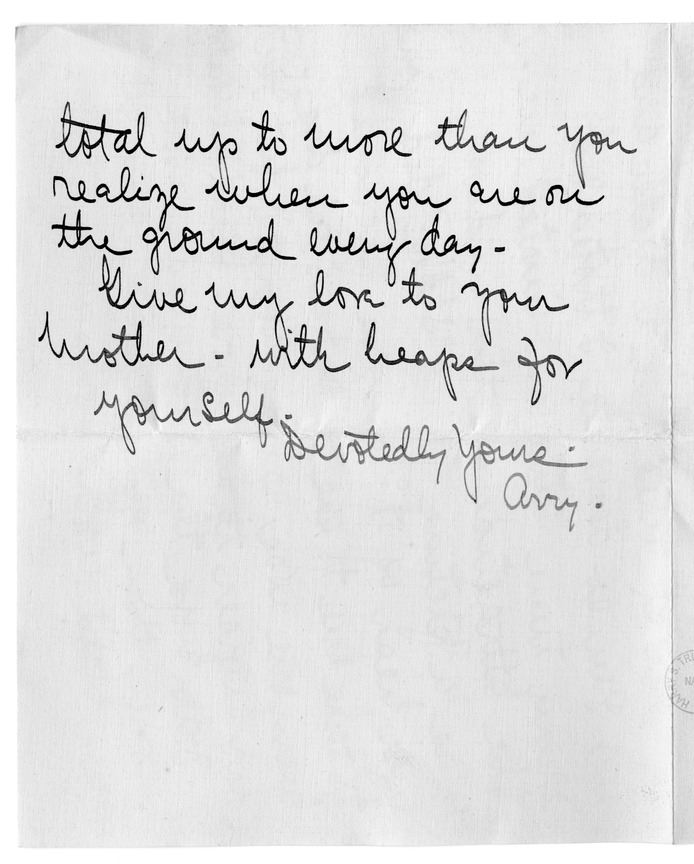 total up to more than you
realize when you are on
the ground every day -
Give my love to your
Mother - with heaps for
yourself.
Devotedly Yours -
Arry.
HARRY S. TR
NA